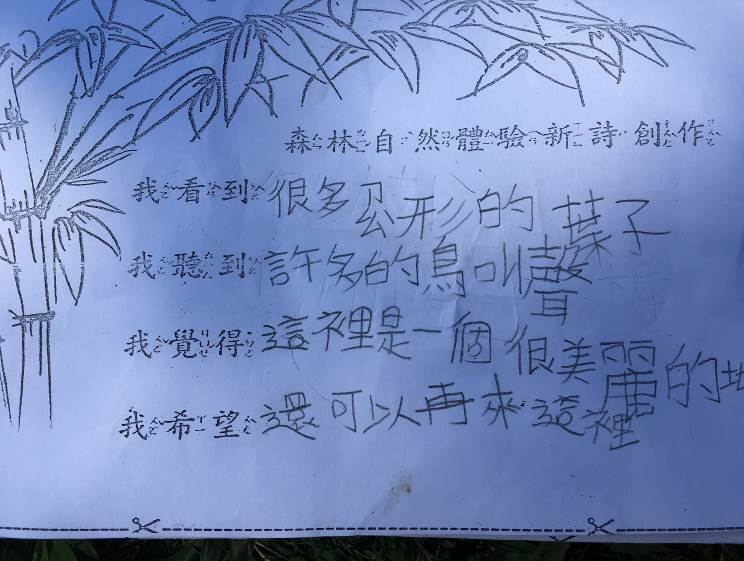 森林自然體驗新詩創作
我看到很多公形的葉子
我聽到許多的鳥叫聲
我覺得這裡是一個很美麗的地
我希望還可以再來這裡